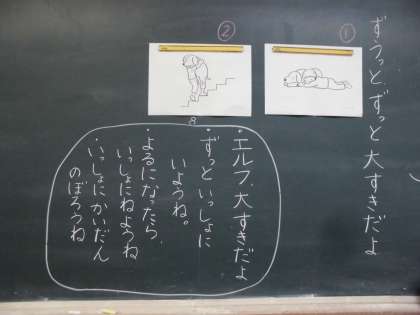 ずうっと、ずっと 大すきだよ
①
②
8
・エルフ、大すきだよ
・ずっと いっしょに
いようね。
・よるになったら、
いっしょにねようね
・いっしょにかいだん
のぼろうね